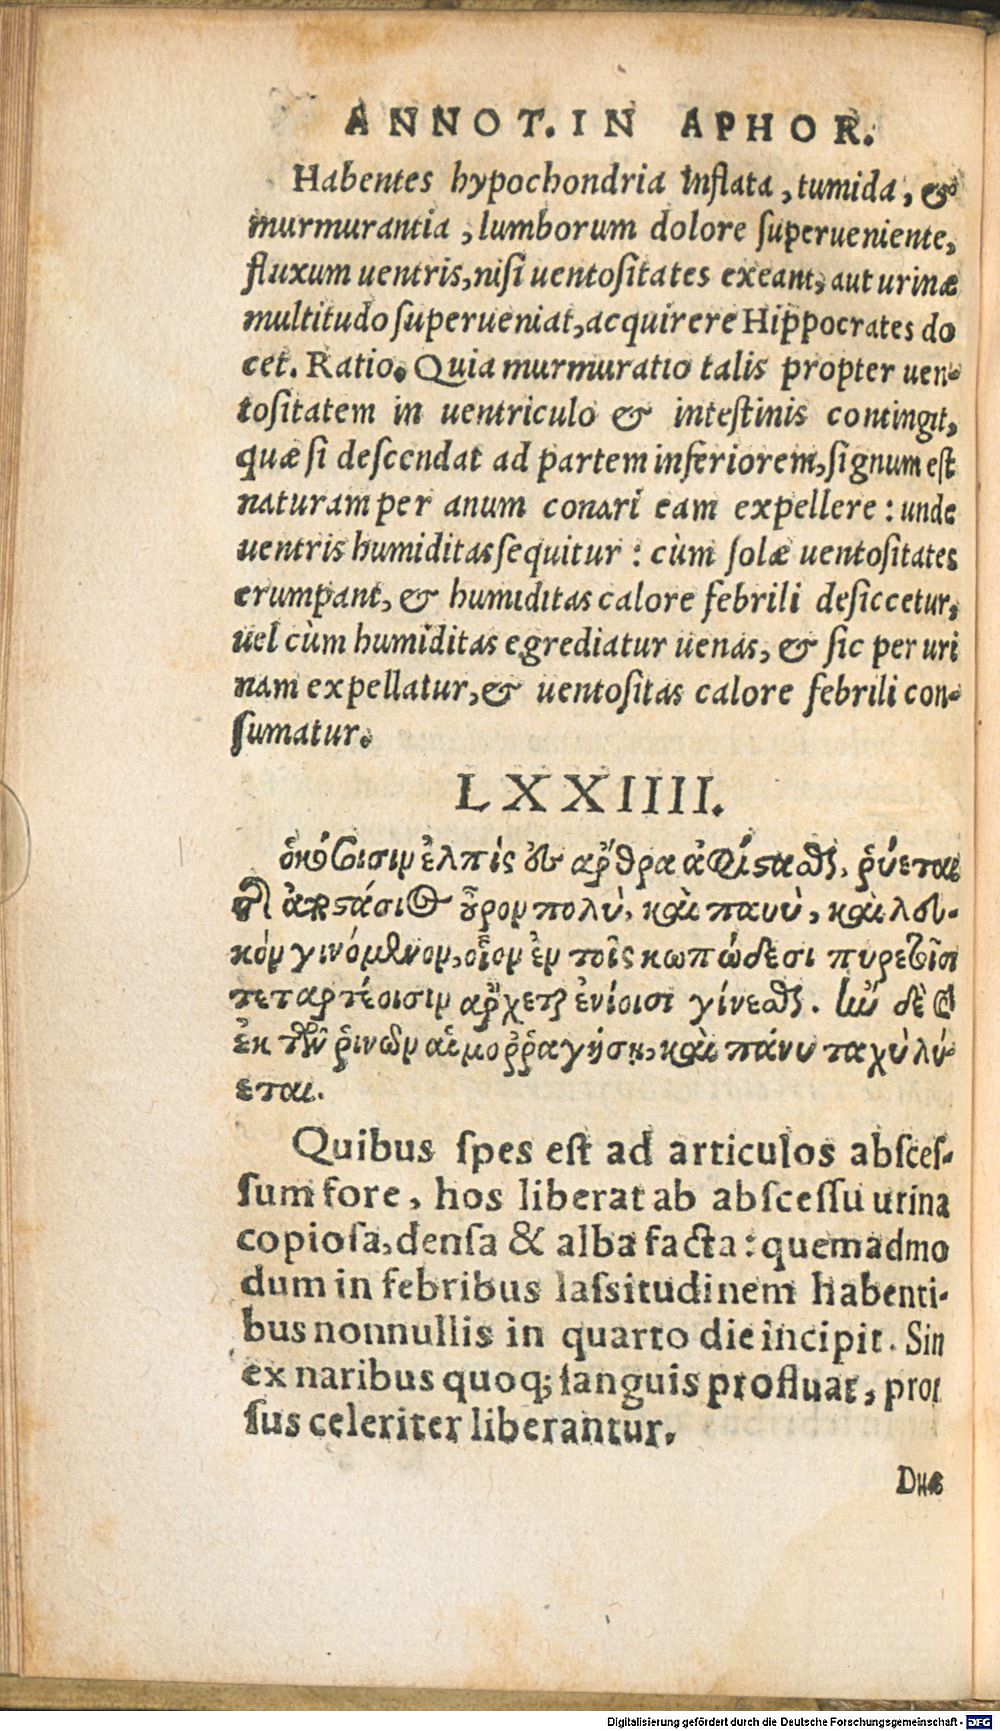 ANNOT. IN APHOR.
Habentes hypochondria inflata, tumida, &
murmurantia, lumborum dolore superueniente,
fluxum uentris, nisi uentositates exeant, aut urinæ
multitudo superueniat, acquirere Hippocrates do
cet. Ratio. Quia murmuratio talis propter uen-
tositatem in uentriculo & intestinis contingit,
quæ si descendat ad partem inferiorem, signum est
naturam per anum conari eam expellere: unde
uentris humiditas sequitur: cùm solæ uentositates
erumpant, & humiditas calore febrili desiccetur,
uel cùm humiditas egrediatur uenas, & sic per uri
nam expellatur, & uentositas calore febrili con-
sumatur.
LXXIIII.
ὁκόσοισιν ἐλπὶς ἐς ἄρθρα ἀφίστασθαι, ῥύεται
ἀποστάσιος οὖρον πολὺ, καὶ παχὺ, καὶ λευ-
κὸν γινόμενον, οἷον ἐν τοῖς κωπώδεσι πυρετοῖσι
τεταρτέοισιν ἄρχεται ἐνίοισι γίνεσθαι. ἢν δὲ καὶ
ἐκ τῶν ῥινῶν αἱμοῤῥαγήσῃ, καὶ πάνυ ταχὺ λύ-
εται.
Quibus spes est ad articulos absces-
sum fore, hos liberat ab abscessu urina
copiosa, densa & alba facta: quemadmo
dum in febribus lassitudinem habenti-
bus nonnullis in quarto die incipit. Sin
ex naribus quoq; sanguis profluat, pror
sus celeriter liberantur.
Duæ
Digitalisierung gefördert durch die Deutsche Forschungsgemeinschaft - DFG